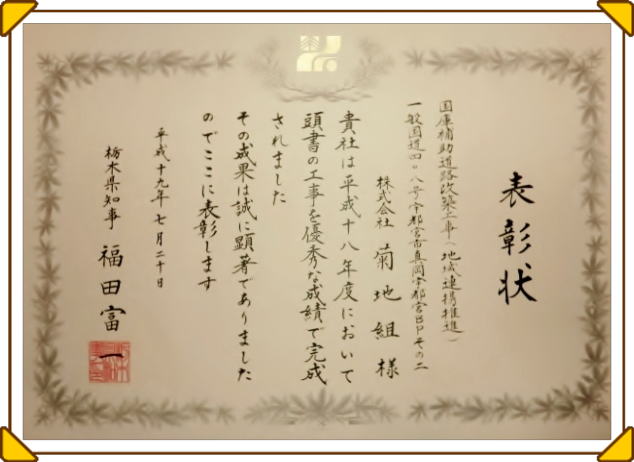 表彰状
国庫補助道路改築工事(地域連携推進)
一般国道四〇八号宇都宮市真岡宇都宮BPその二
株式会社 菊地組 様
貴社は平成十八年度において
頭書の工事を優秀な成績で完成
されました
その成果は誠に顕著でありました
のでここに表彰します
平成十九年七月二十日
栃木県知事 福田富一